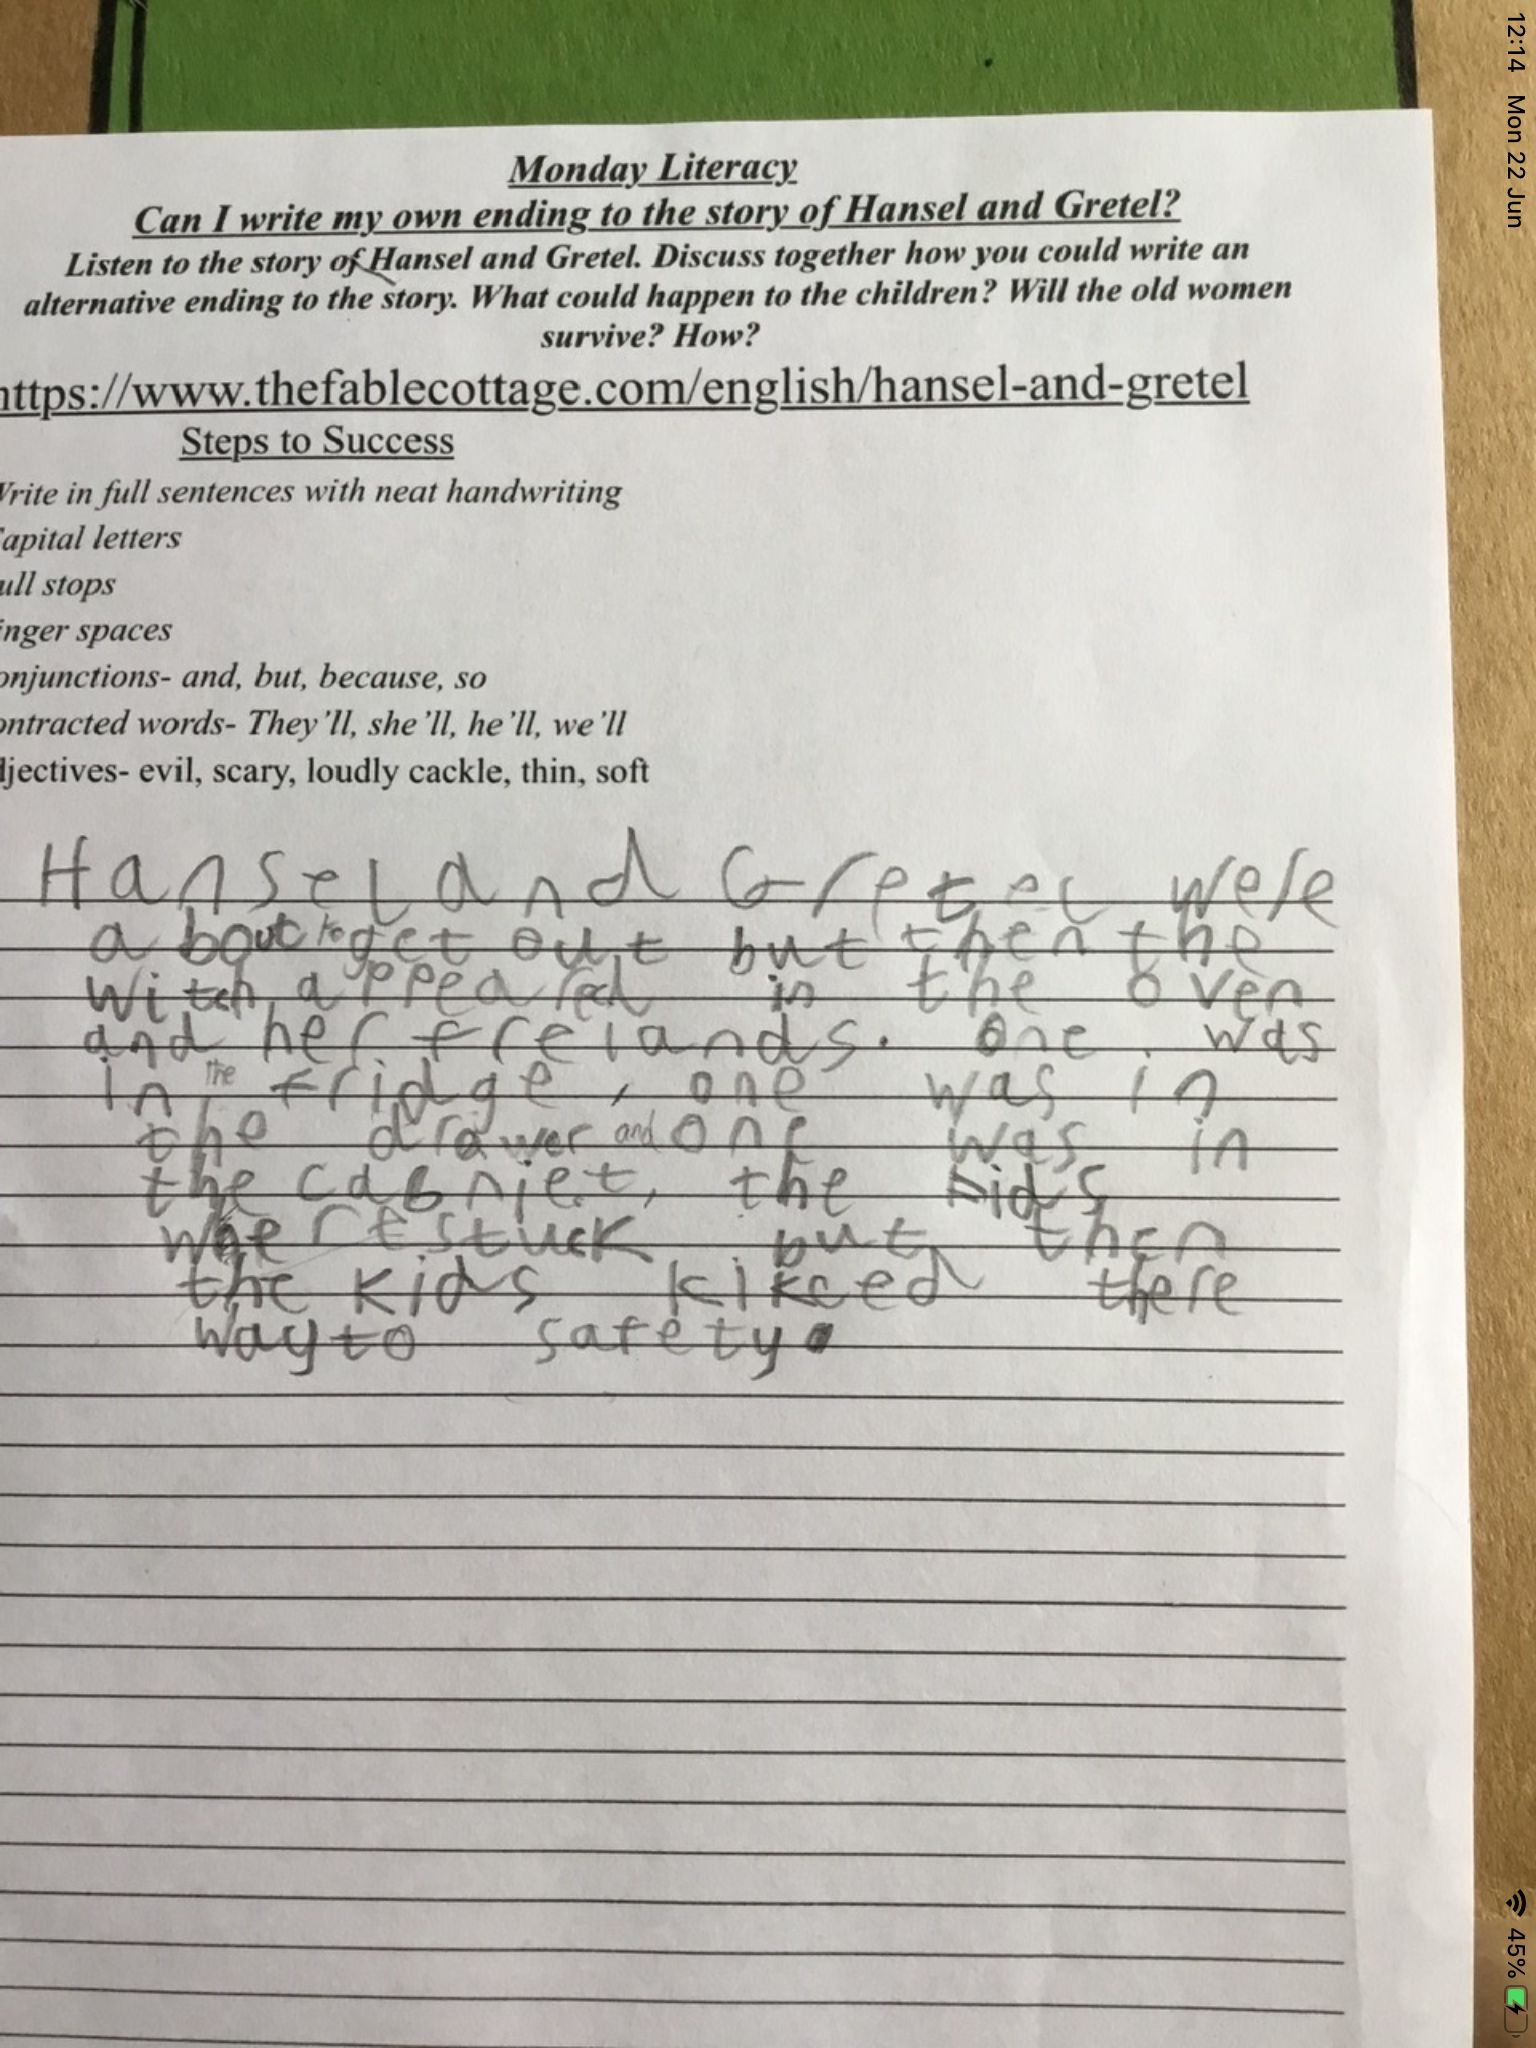 Monday Literacy
Can I write my own ending to the story of Hansel and Gretel?
Listen to the story of Hansel and Gretel. Discuss together how you could write an
alternative ending to the story. What could happen to the children? Will the old women
survive? How?
https://www.thefablecottage.com/english/hansel-and-gretel
Steps to Success
Write in full sentences with neat handwriting
apital letters
ull stops
inger spaces
onjunctions- and, but, because, so
ontracted words- They'll, she'll, he'll, we'll
djectives- evil, scary, loudly cackle, thin, soft
Hansel and Gretel were
a bout to get out but then the
witch appeared in the oven
and her freiands. one was
in the fridge, one was in
the drawer and one was in
the cabniet, the kids
were stuck but then
the kids kikced there
way to safety.
12:14 Mon 22 Jun
45%